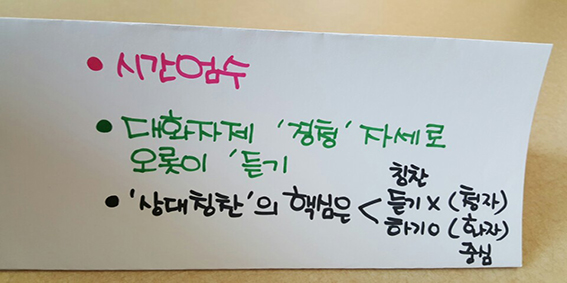 • 시간엄수
• 대화자제 '경청' 자세로
오롯이 '듣기
칭찬
• '상대칭찬'의 핵심은 < 듣기 X (청자)
하기 O (화자)
중심